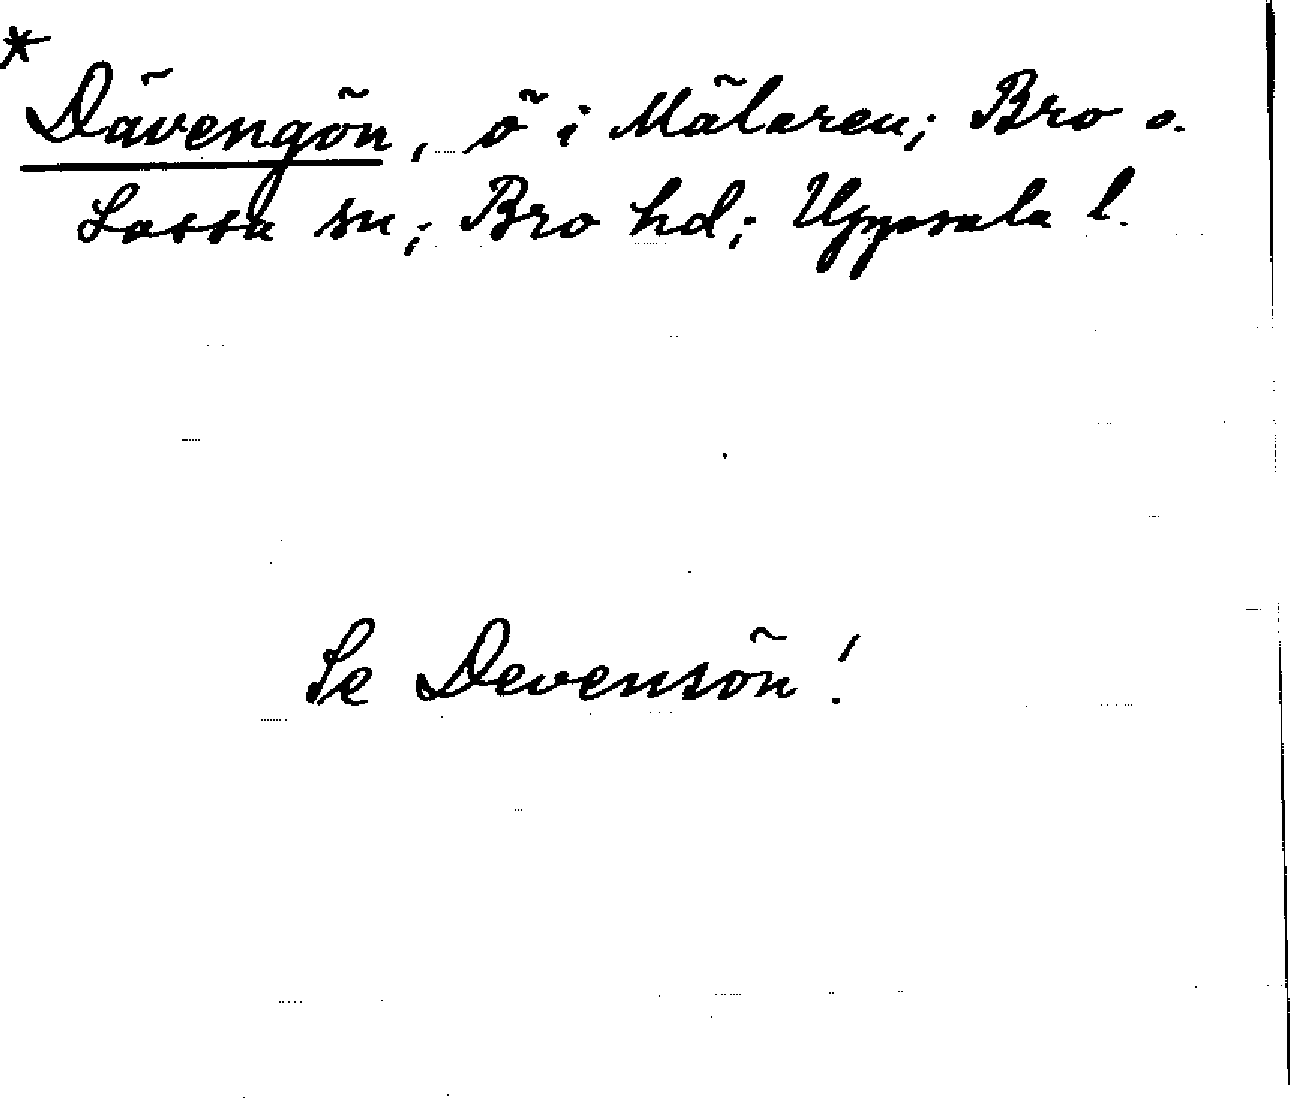 * Dävengön, ö i Mälaren; Bro o.
Lossa sn; Bro hd; Uppsala l.
Se Devensön!